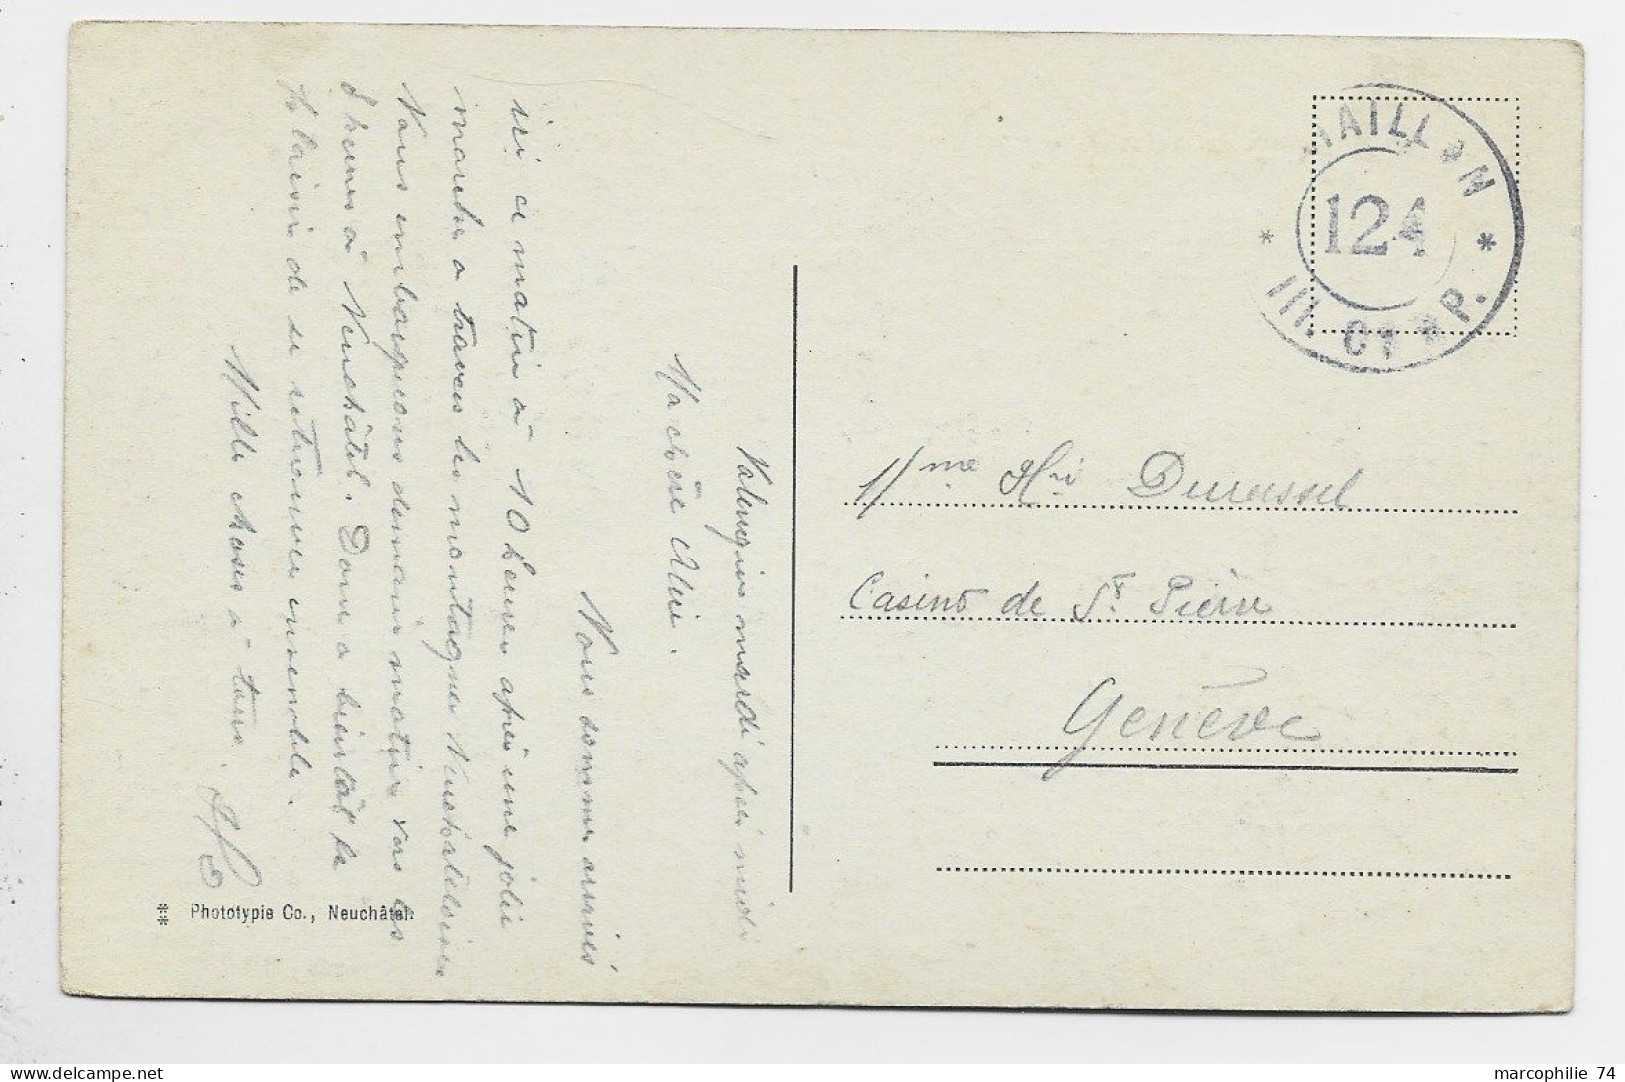 Valengin mardi après midi
Ma chère Alice.
Nous sommes arrivés
ici ce matin à 10 heures après une jolie
marche a travers les montagnes Neuchateloises
Nous embarquons demain matin vers les
8 heures à Neuchâtel. Donc a bientôt le
plaisir de se retrouver ensemble.
Mille choses à tous.
⁑ Phototypie Co., Neuchâtel.
BATAILLON
124
* III. Cie P. *
Mme Hri Durussel
Casino de St. Pierre
Genève
marcophilie 74